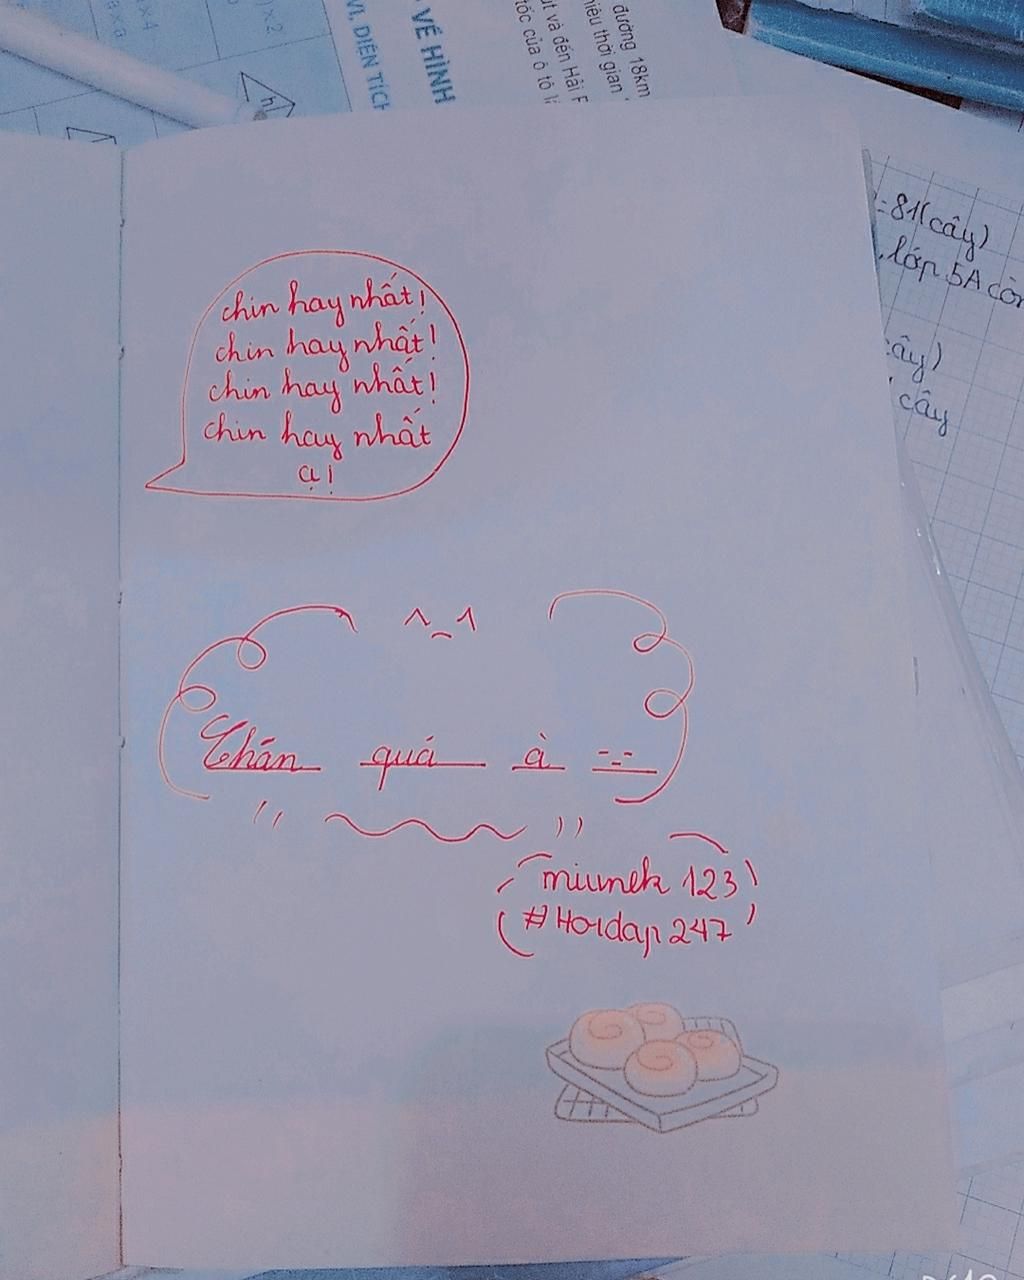 )×2
×4
a×a
VI. DIỆN TÍCH
VỀ HÌNH
h
đường 18km
thời gian
út và đến Hải
tốc của ô tô
=81(cây)
lớp 5A còn
cây)
cây
chin hay nhất!
chin hay nhất!
chin hay nhất!
chin hay nhất
ạ!
^_^
Chán quá à -_-
miunek 123
#Hoidap247